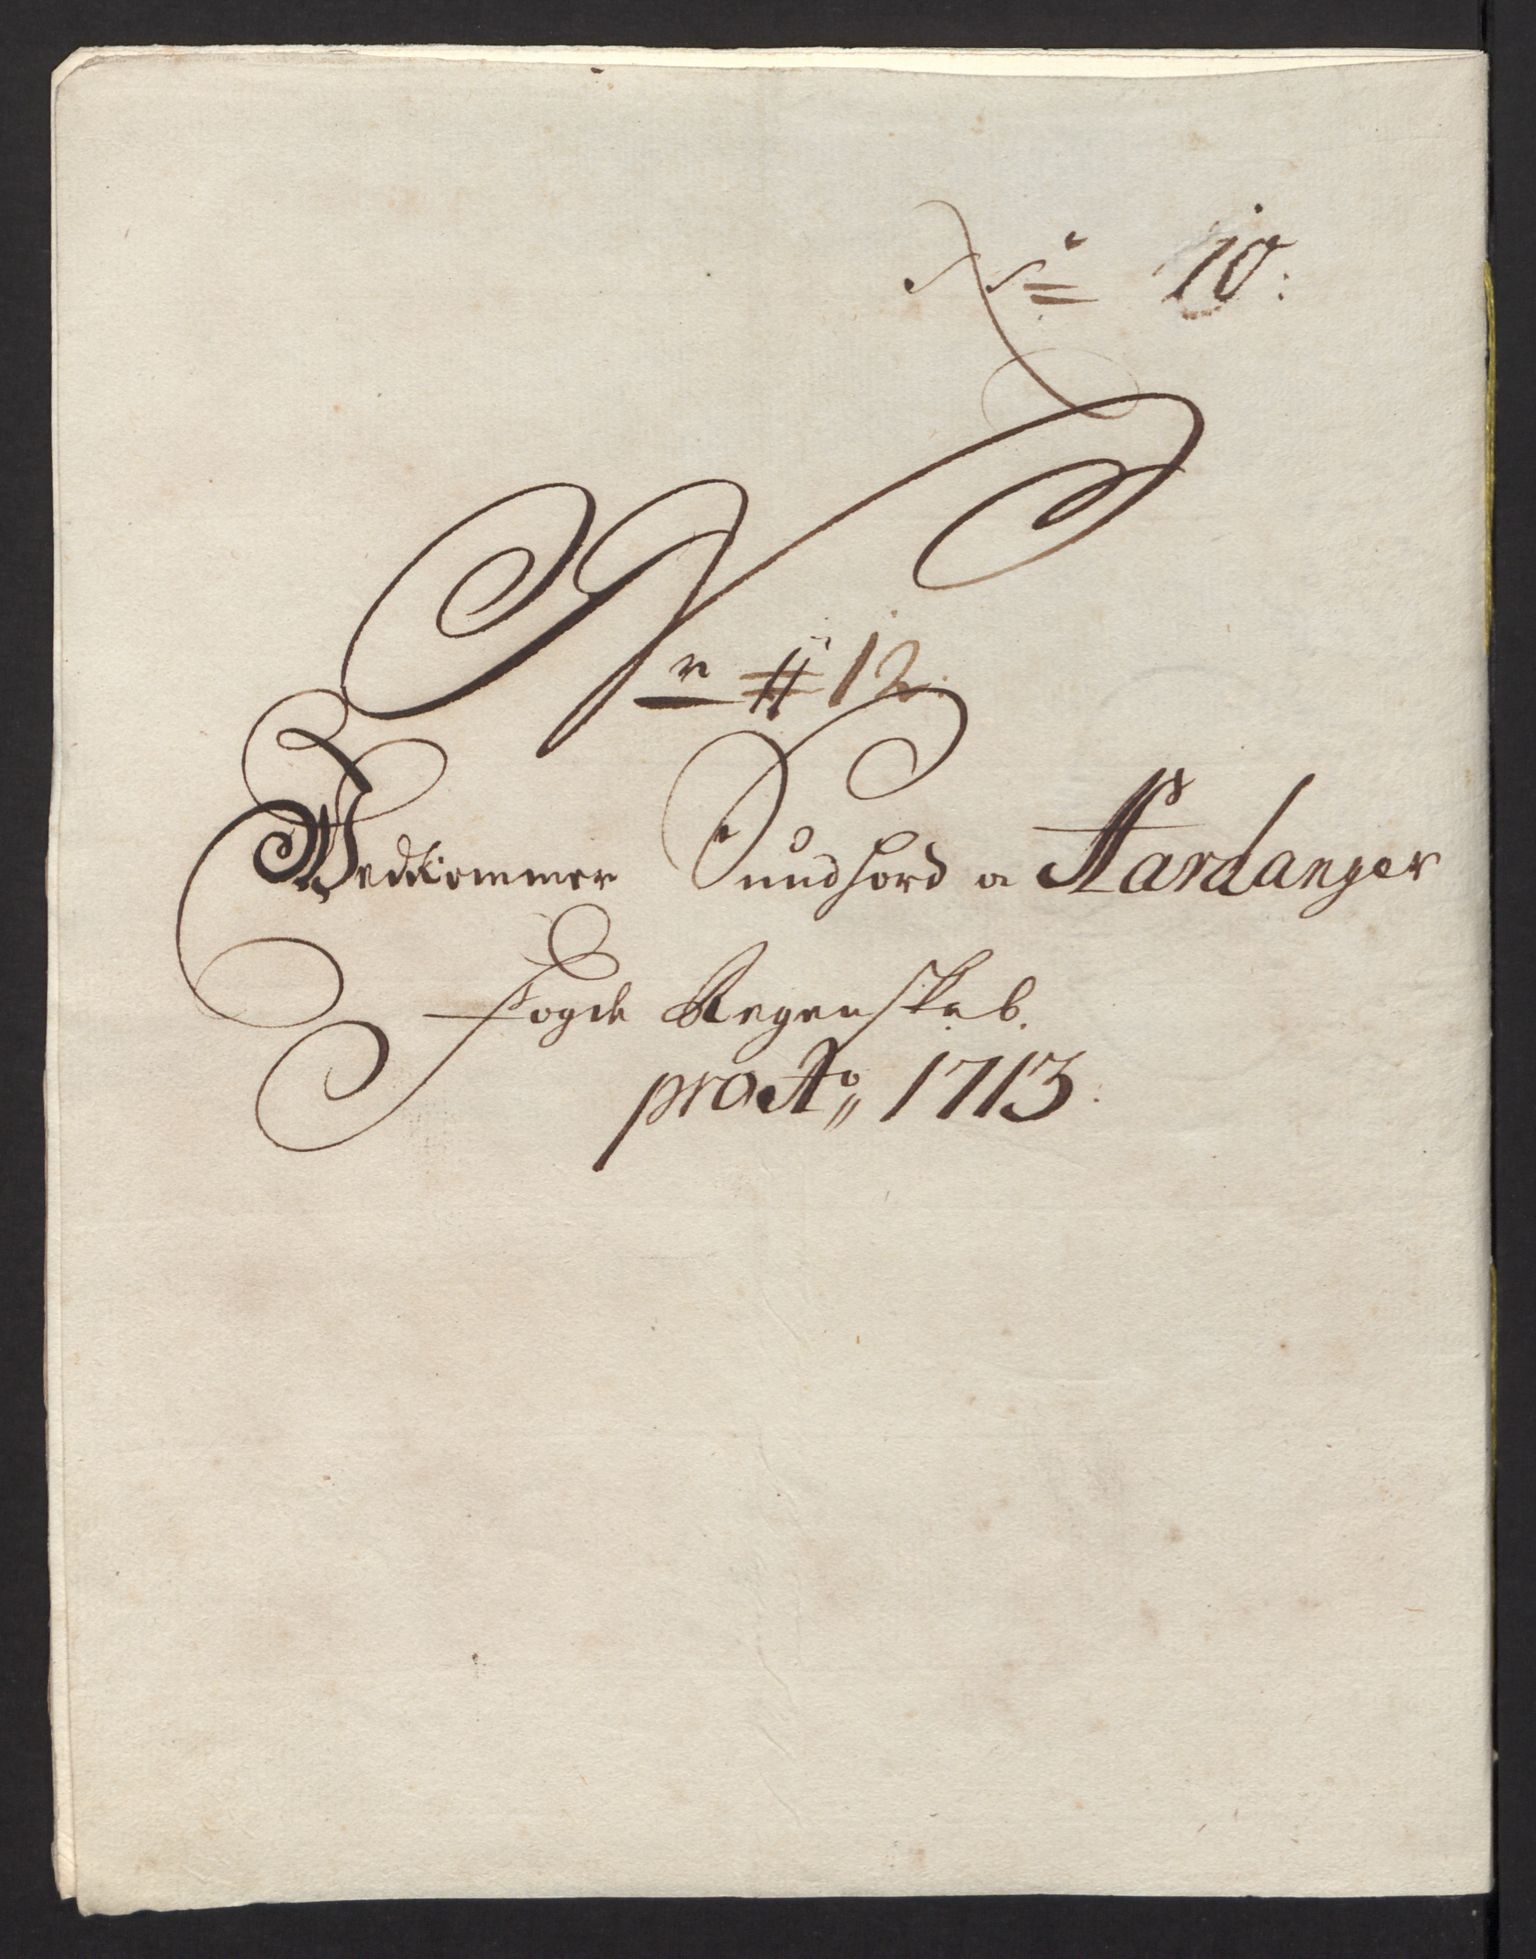 No 10:
Nr 12.
Vedkommer Sundhord a Hardanger
Fogde Regenskab.
pro Ao, 1713.